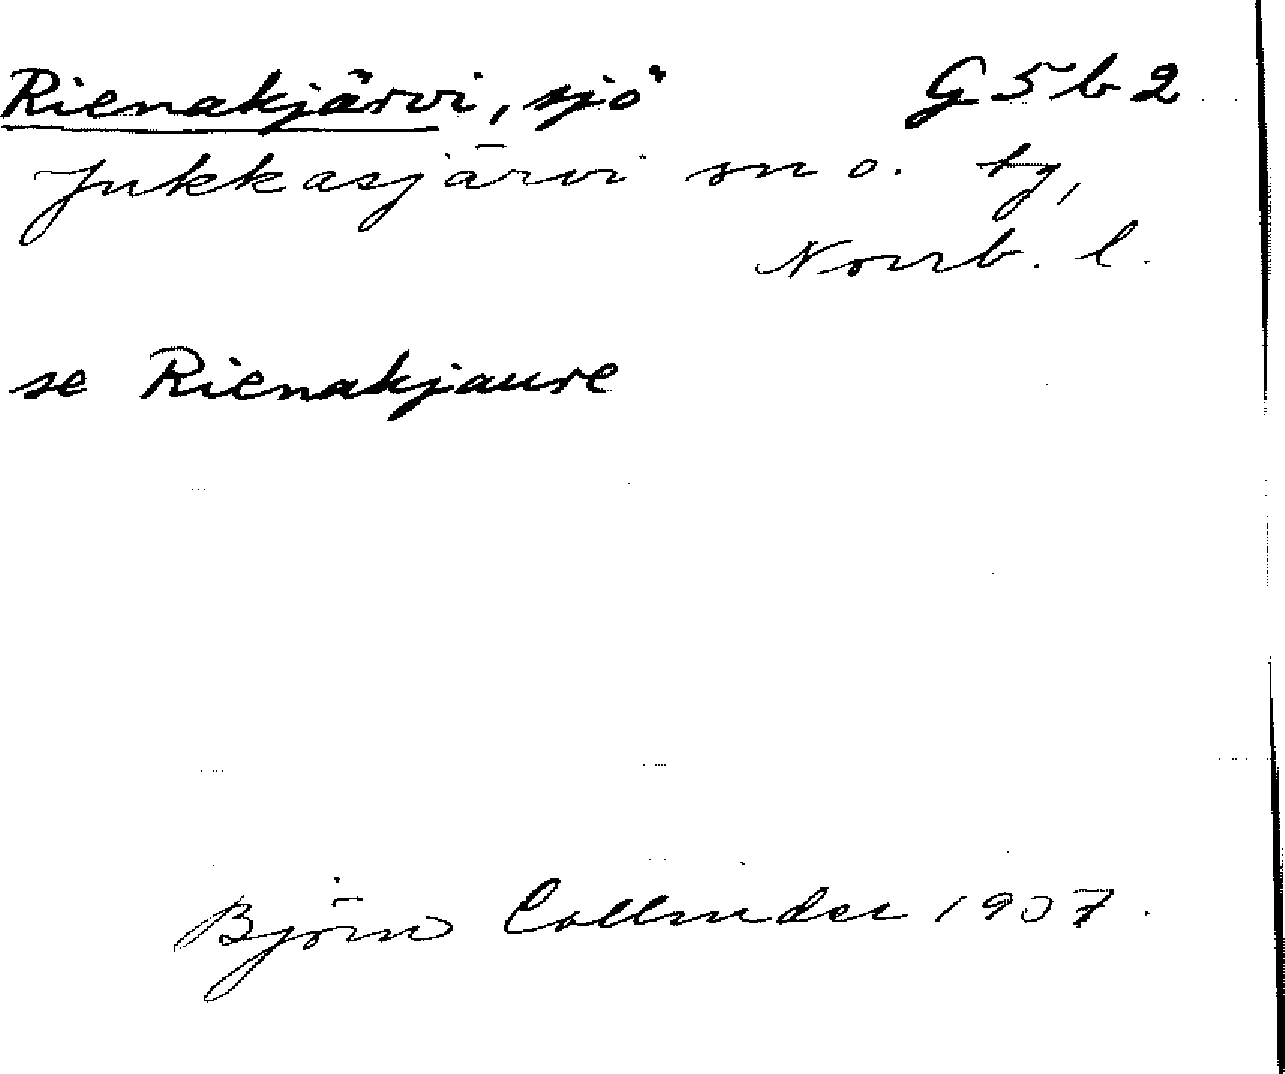 Rienakjärvi, sjö G5b2
Jukkasjärvi sn o. tg,
Norrb. l.
se Rienakjaure
Björn Collinder 1937.